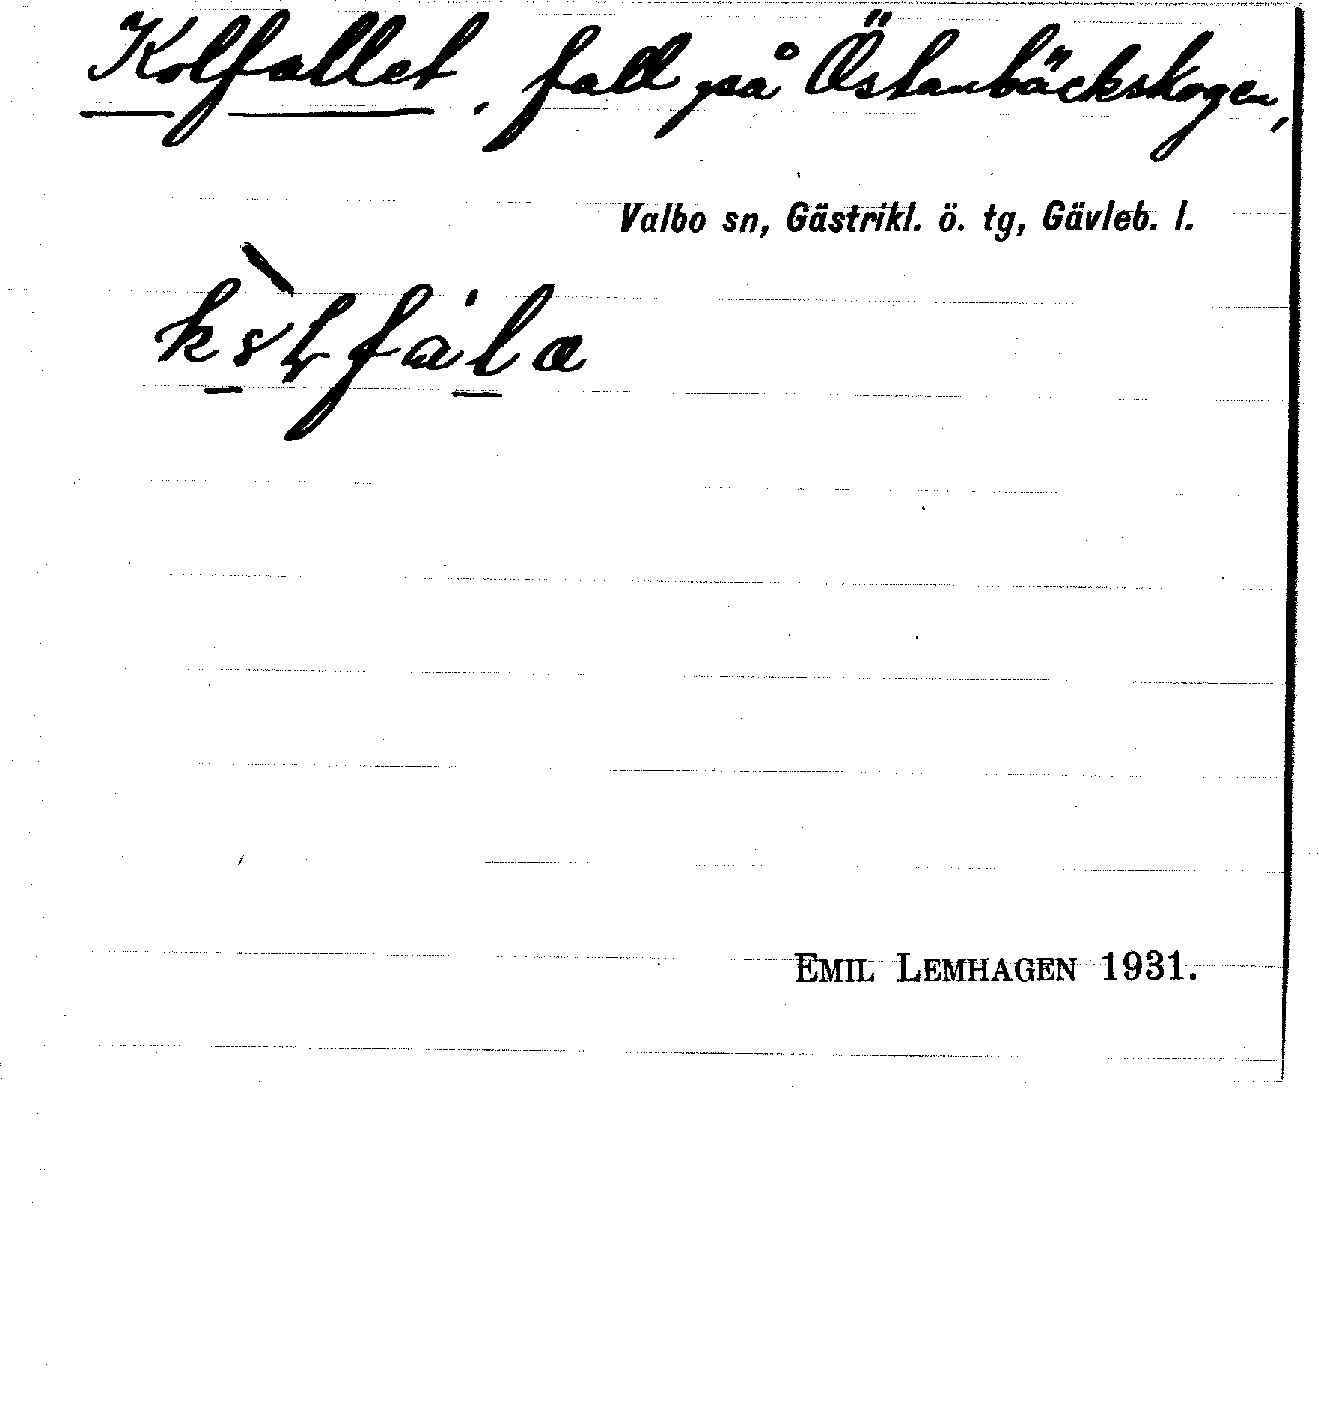 Kolfallet, fall på Östanbäckskogen,
Valbo sn, Gästrikl. ö. tg, Gävleb. l.
EMIL LEMHAGEN 1931.